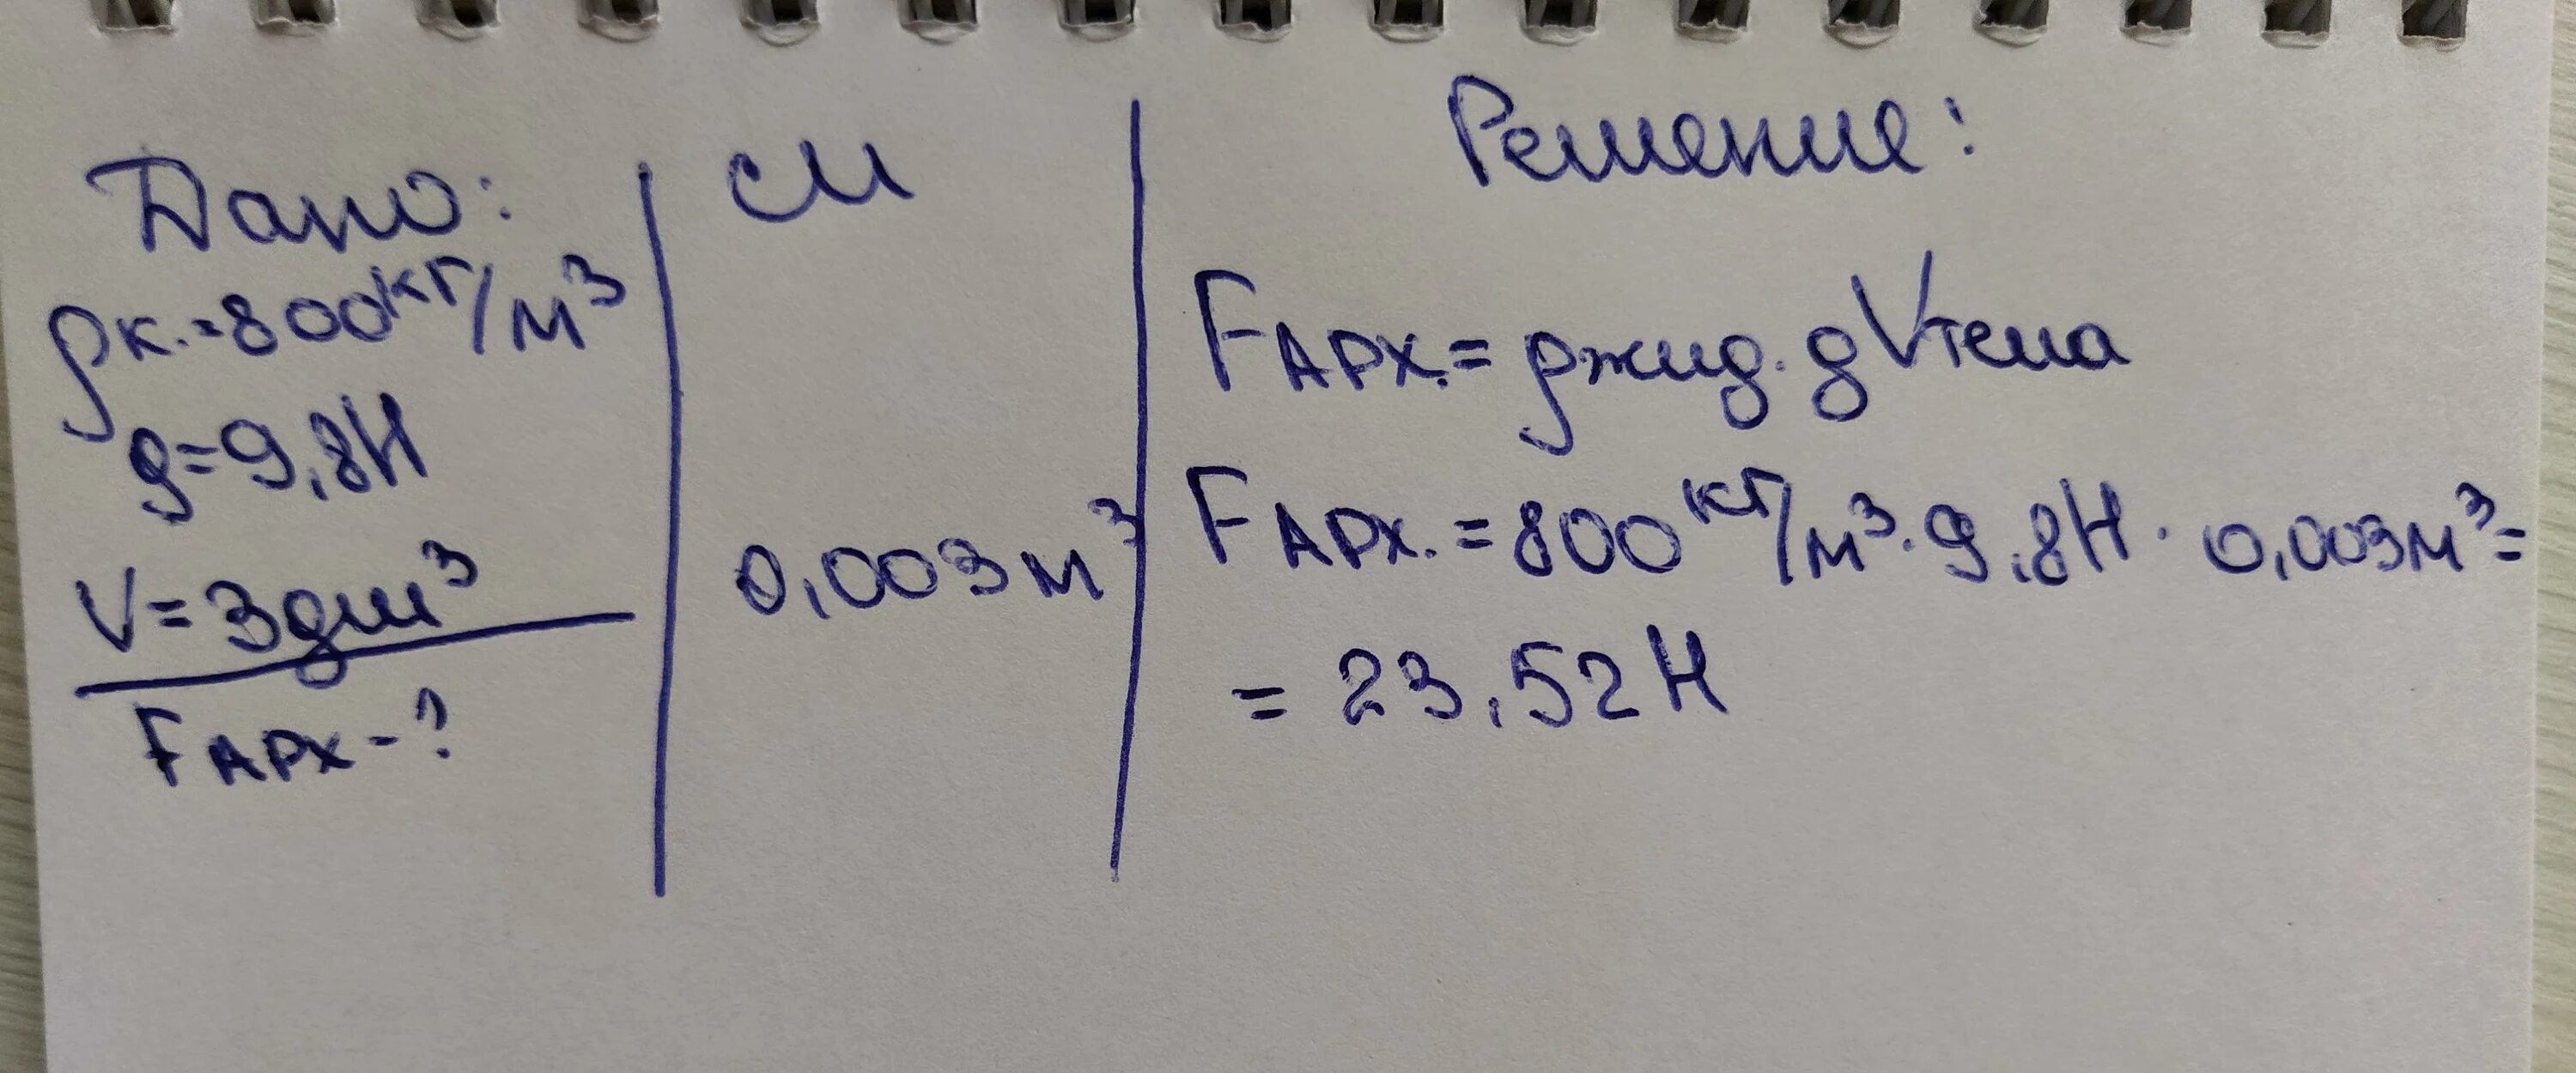 Дано:
ρк.=800кг/м³
g=9,8Н
V=3дм³
Fарх-?
СИ
0,003м³
Решение:
Fарх.=ρжид.gVтела
Fарх.=800кг/м³·9,8Н·0,003м³=
=23,52Н